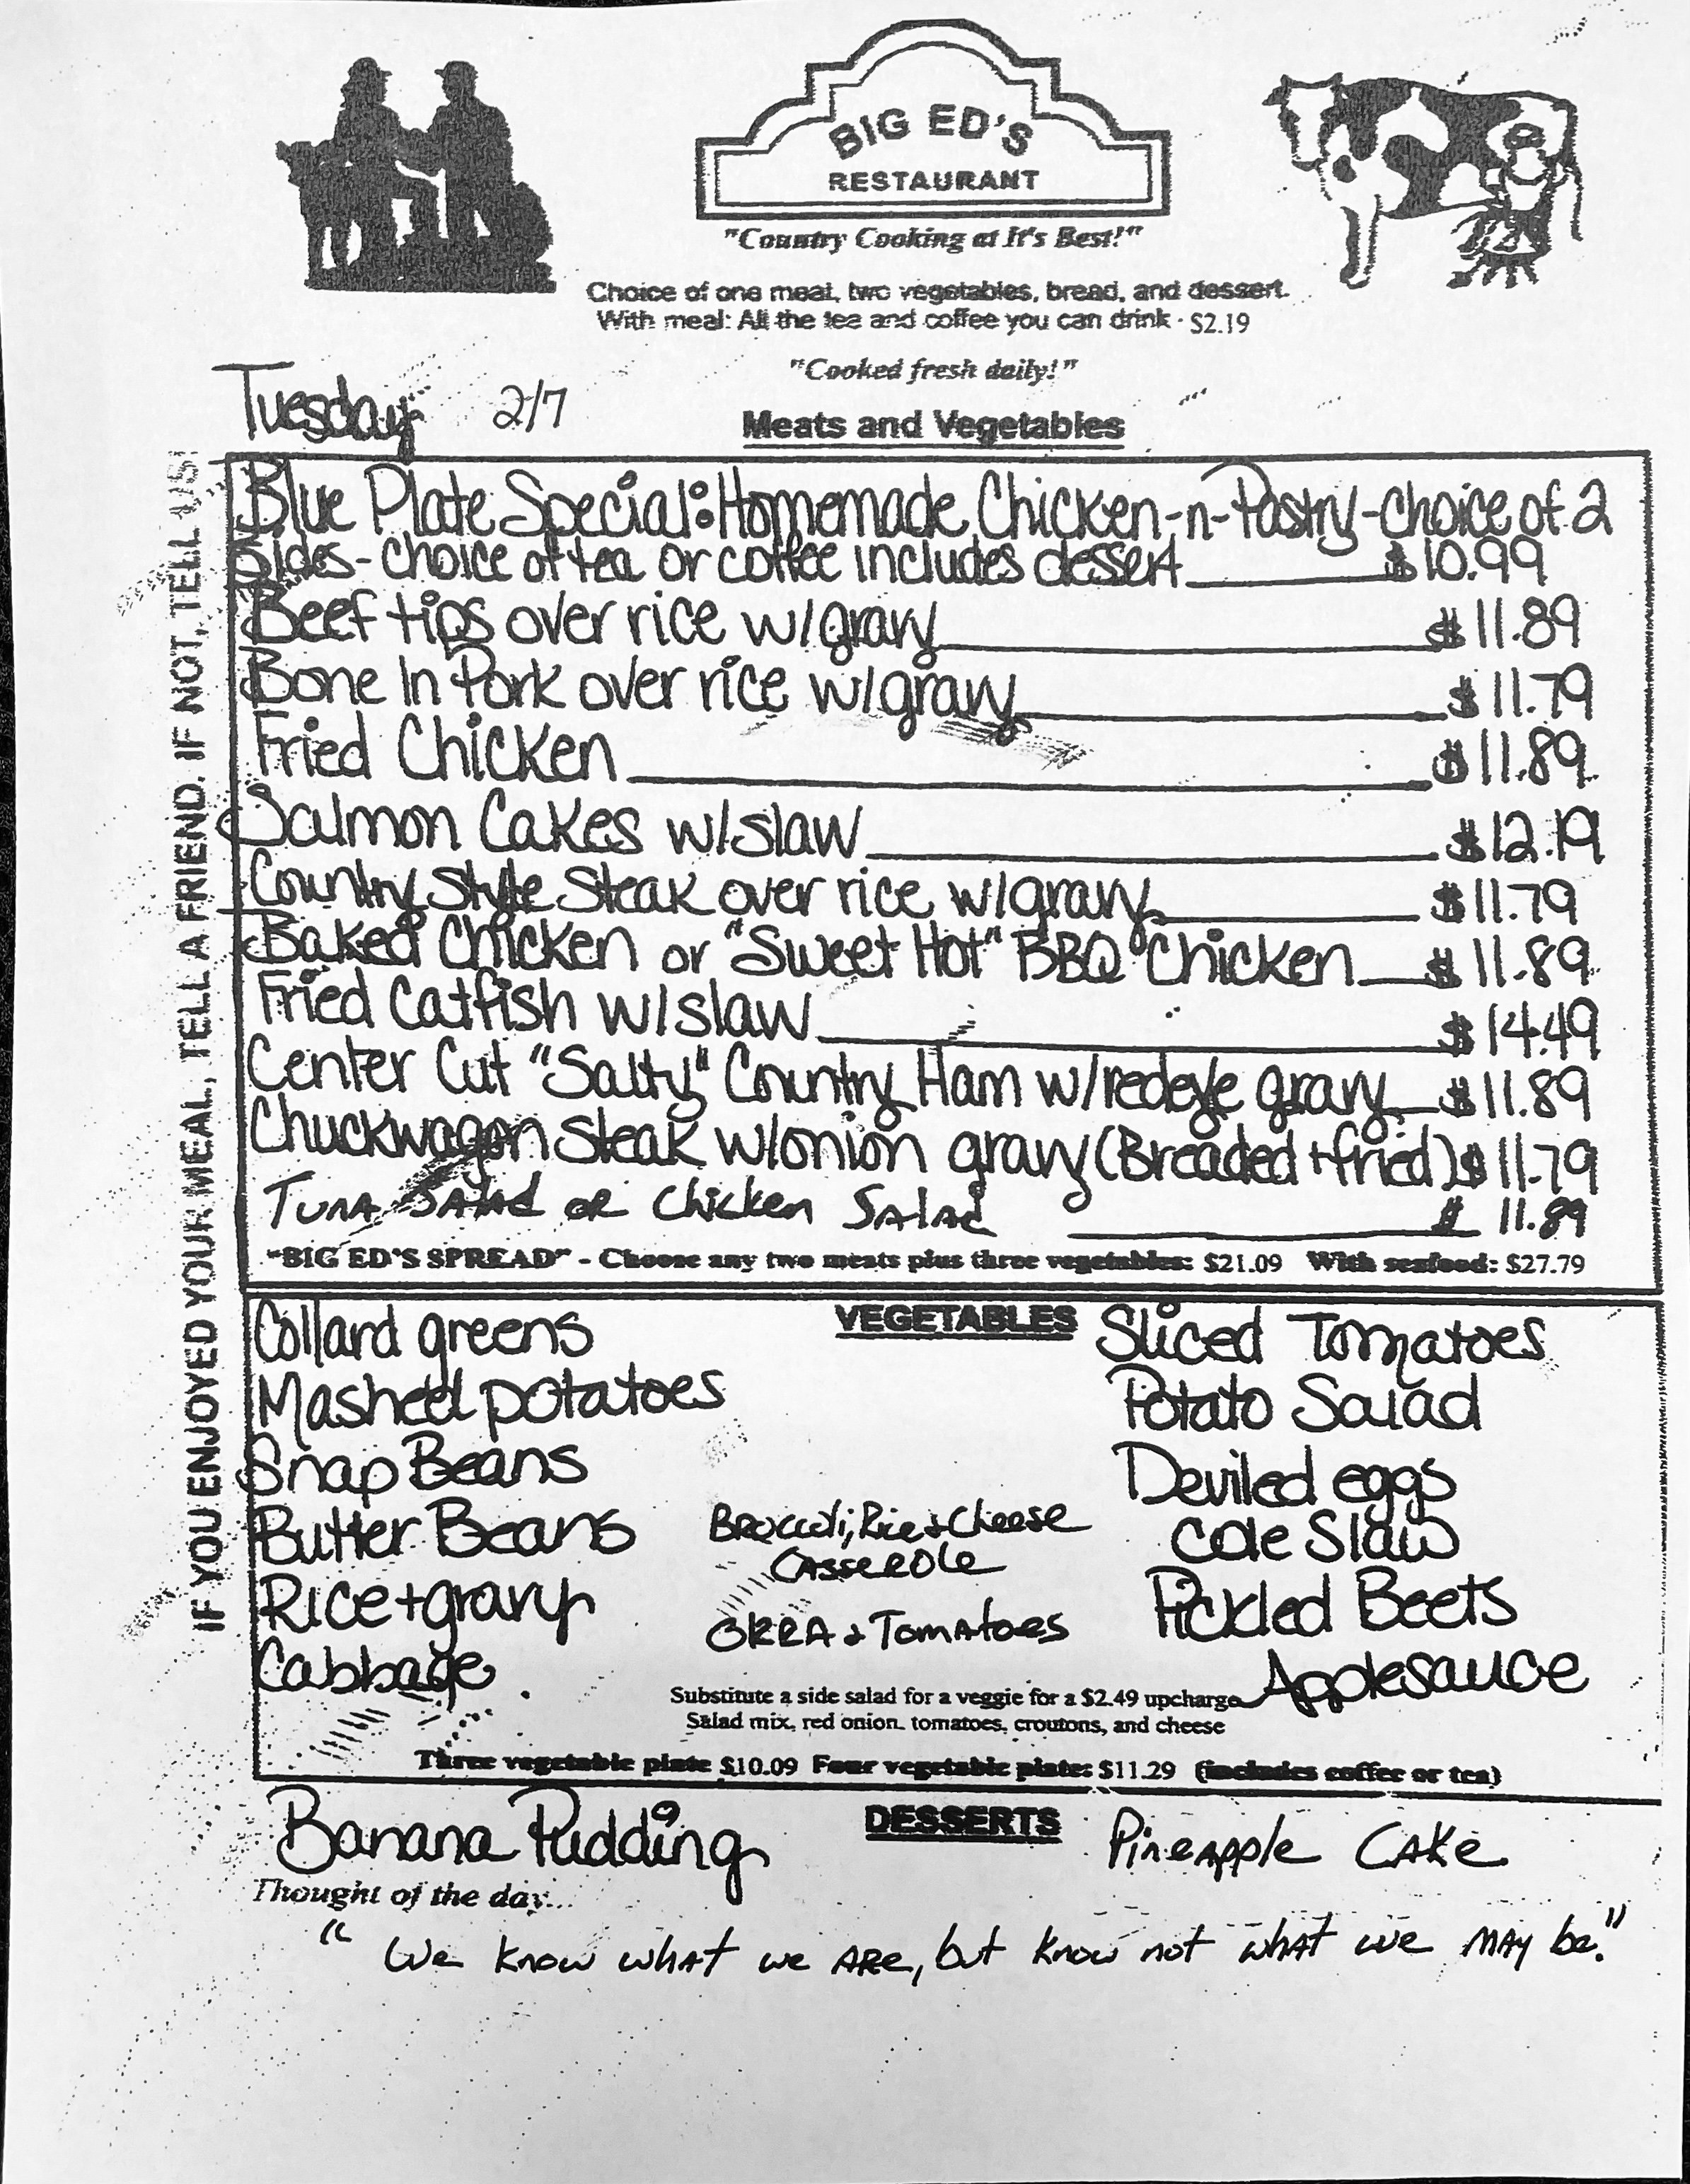 BIG ED'S
RESTAURANT
"Country Cooking at It's Best!"
Choice of one meat, two vegetables, bread, and dessert.
With meal: All the tea and coffee you can drink - $2.19
"Cooked fresh daily!"
Tuesday 2/7
Meats and Vegetables
IF YOU ENJOYED YOUR MEAL, TELL A FRIEND. IF NOT, TELL US!
Blue Plate Special: Homemade Chicken-n-Pastry-choice of 2
sides- choice of tea or coffee includes dessert $10.99
Beef tips over rice w/gravy $11.89
Bone In Pork over rice w/gravy $11.79
Fried Chicken $11.89
Salmon Cakes w/slaw $12.19
Country Style Steak over rice w/gravy $11.79
Baked Chicken or "Sweet Hot" BBQ Chicken $11.89
Fried Catfish w/slaw $14.49
Center Cut "Salty" Country Ham w/redeye gravy $11.89
Chuckwagon Steak w/onion gravy (Breaded + fried) $11.79
Tuna Salad or Chicken Salad $11.89
"BIG ED'S SPREAD" - Choose any two meats plus three vegetables: $21.09 With seafood: $27.79
VEGETABLES
Collard greens
Mashed potatoes
Snap Beans
Butter Beans
Rice + gravy
Cabbage
Broccoli, Rice & Cheese
Casserole
OKRA & Tomatoes
Sliced Tomatoes
Potato Salad
Deviled eggs
Cole Slaw
Pickled Beets
Applesauce
Substitute a side salad for a veggie for a $2.49 upcharge
Salad mix, red onion, tomatoes, croutons, and cheese
Three vegetable plate $10.09 Four vegetable plate: $11.29 (includes coffee or tea)
DESSERTS
Banana Pudding Pineapple Cake
Thought of the day...
"We know what we are, but know not what we may be."